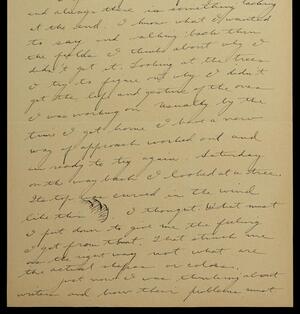 and always there is something lacking
at the end. I know what I wanted
to say and walking back thru
the fields I think about why I
didn't get it. Looking at the trees
I try to figure out why I didn't
get the life and gesture of the ones
I was working on. Usually by the
time I get home I have a new
way of approach worked out and
am ready to try again. Saturday
on the way back I looked at a tree.
Its top was curved in the wind
like this. I thought. What must
I put down to give me the feeling
I get from that. That struck me
as the right way not what are
the actual shapes or colors.
Just now I was thinking about
writers and how their problems must